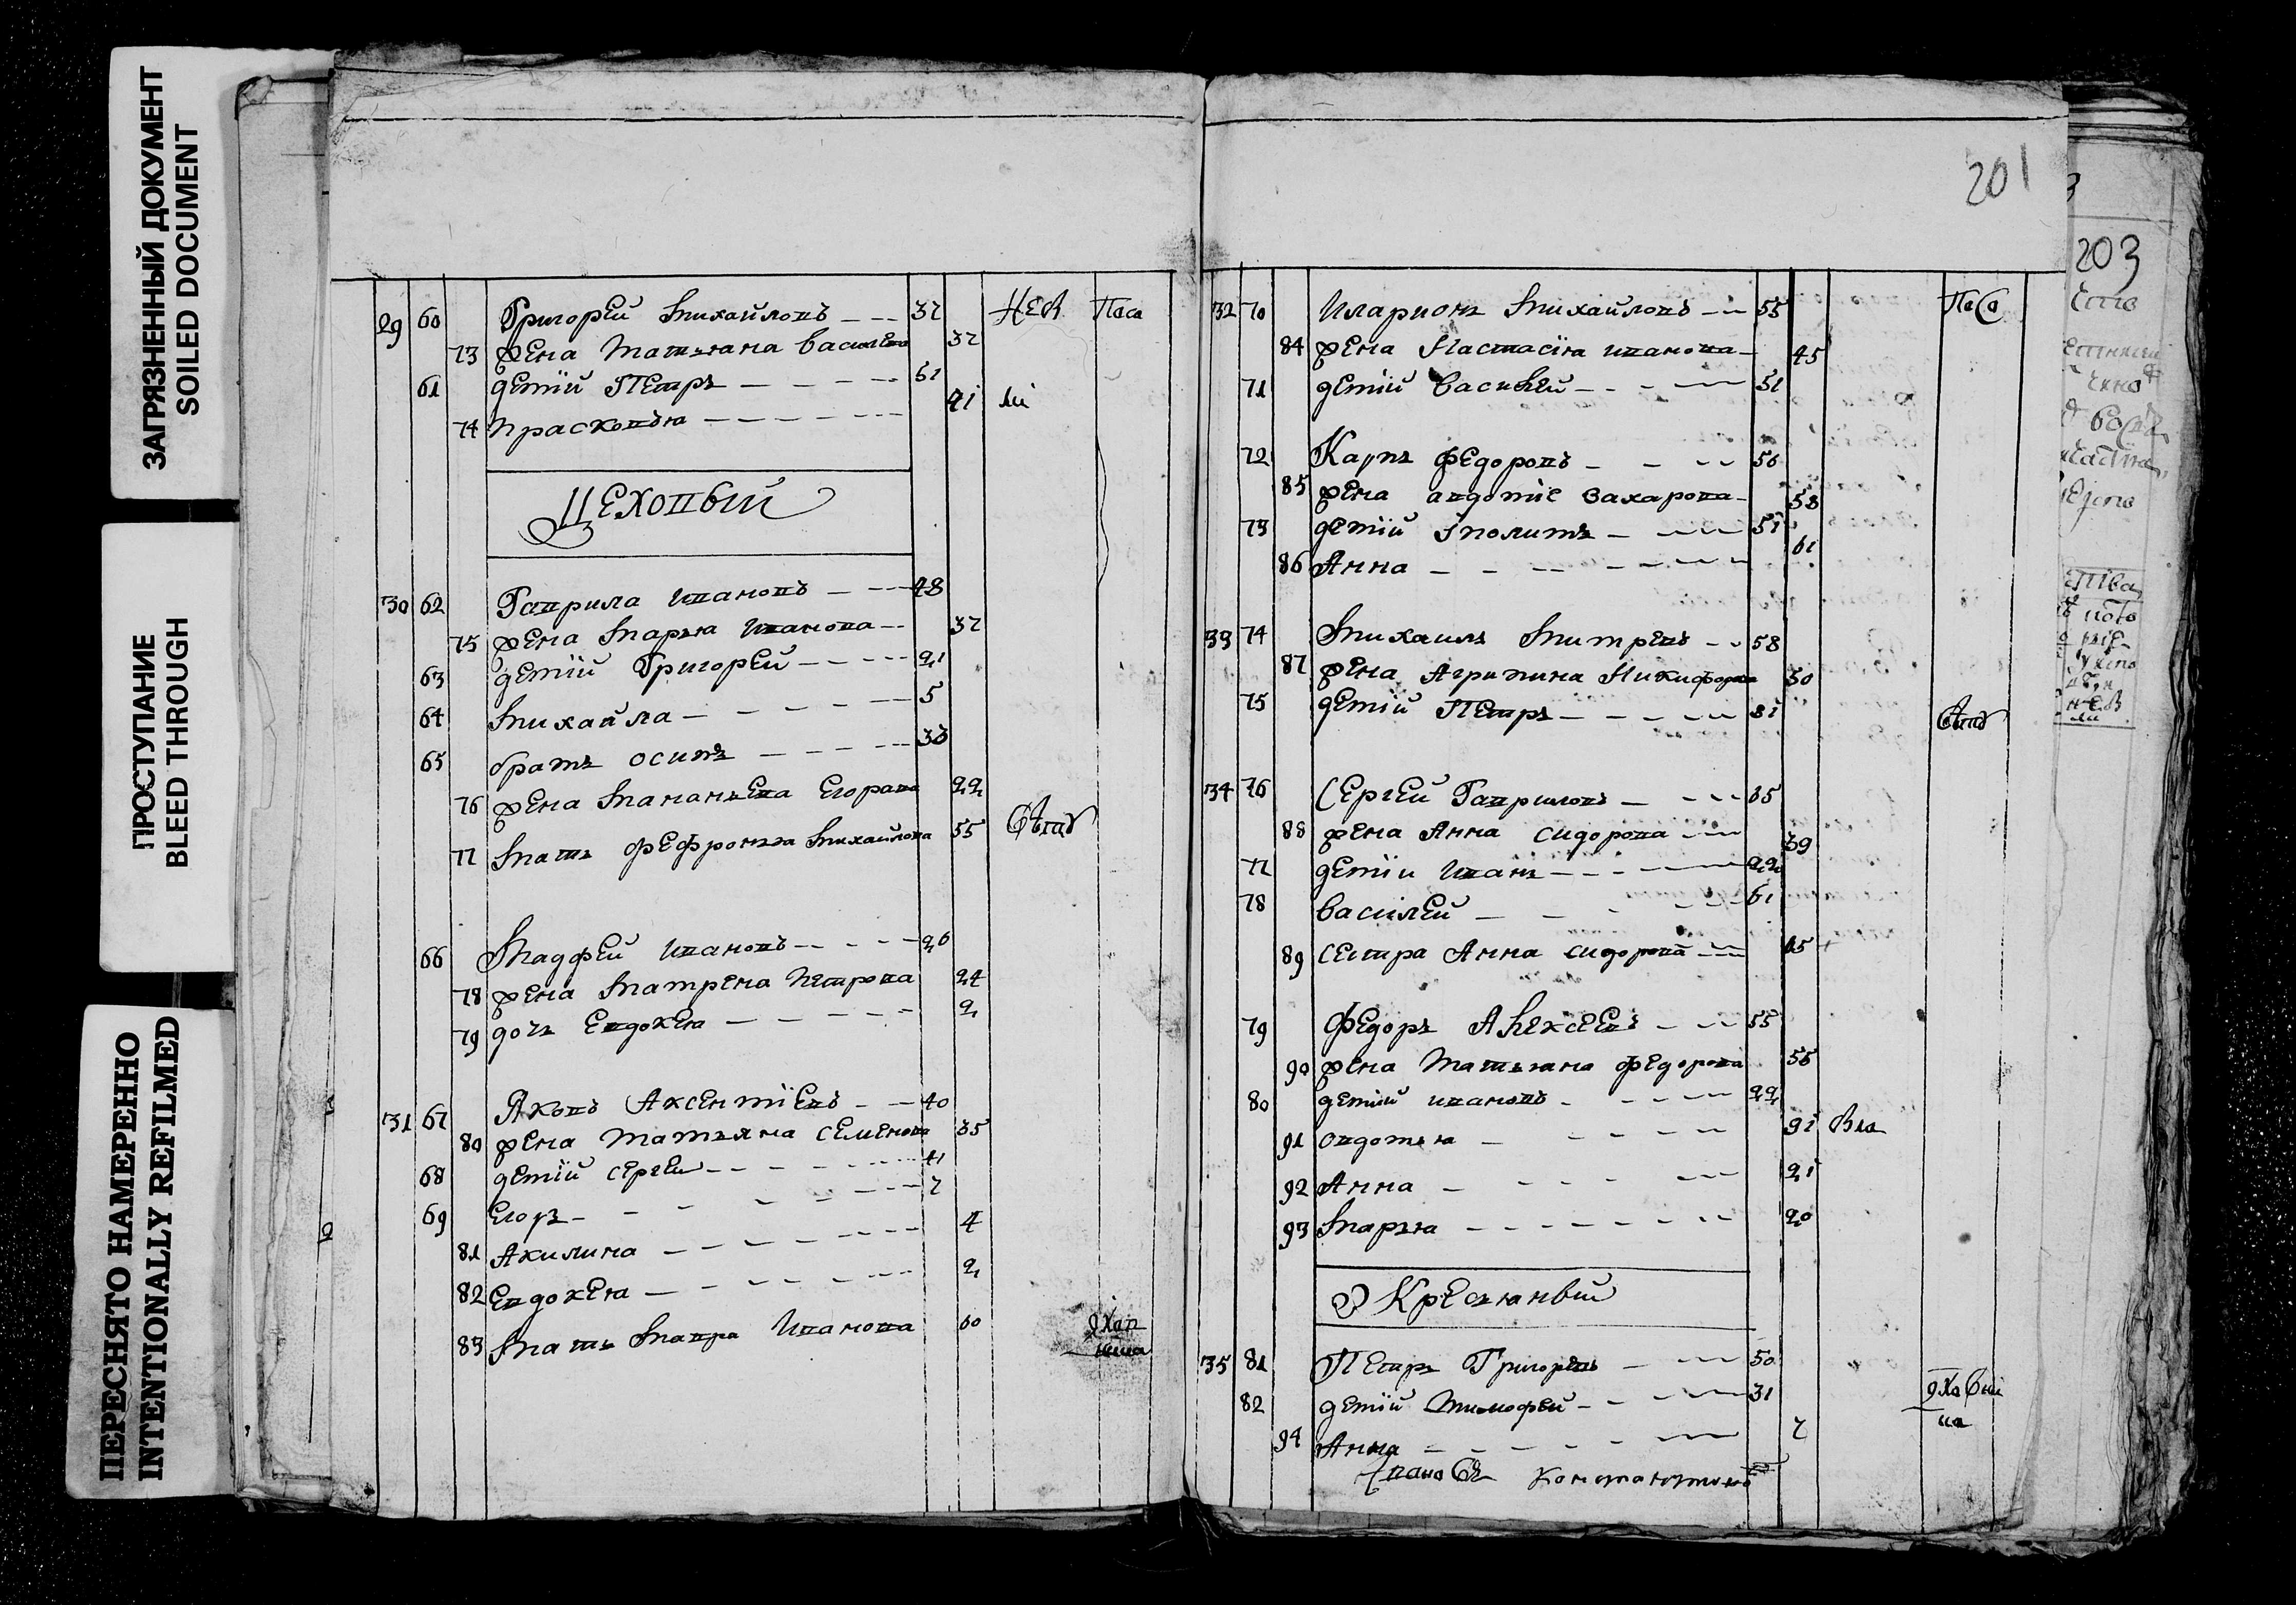 ЗАГРЯЗНЕННЫЙ ДОКУМЕНТ
SOILED DOCUMENT
ПРОСТУПАНИЕ
BLEED THROUGH
ПЕРЕСНЯТО НАМЕРЕННО
INTENTIONALLY REFILMED
29 60 Григорей Михайловъ 37
73 жена Татьяна Васильева 37
61 детїй Петръ
74 Прасковья
Цеховый
30 62 Гаврила Ивановъ 48
75 жена Марья Иванова 37
63 детїй Григорей
64 Михайла 5
65 братъ Осипъ 33
76 жена Маланьева Егорова 22
77 мать Фефронья Михайлова 55
66 Мадфей Ивановъ 26
78 жена Матрена Петрова 24
79 дочь Евдокея 2
31 67 Яковъ Аксентїевъ 40
80 жена Татьяна Семенова 35
68 детїй Сергей
69 Егоръ 7
81 Акилина 4
82 Евдокея 2
83 мать Мавра Иванова 60
201
32 70 Иларионъ Михайловъ 55
84 жена Настасїя Иванова 45
71 детїй Василей
72 Карпъ Федоровъ 56
85 жена Авдотїе Захарова 53
73 детїй Іполитъ
86 Анна
33 74 Михаилъ Митревъ 58
87 жена Агрипина Никифорова 30
75 детїй Петръ
34 76 Сергей Гавриловъ
88 жена Анна Сидорова 39
77 детїи Иванъ 22
78 Василей
89 сестра Анна Сидорова
79 Федоръ Алексеевъ 55
90 жена Татьяна Федорова 55
80 детїй Ивановъ 22
91 Овдотья
92 Анна
93 Марья 20
Кресьяный
35 81 Петръ Григорьевъ 50
82 детїй Тимофей 31
94 Анна 7
203